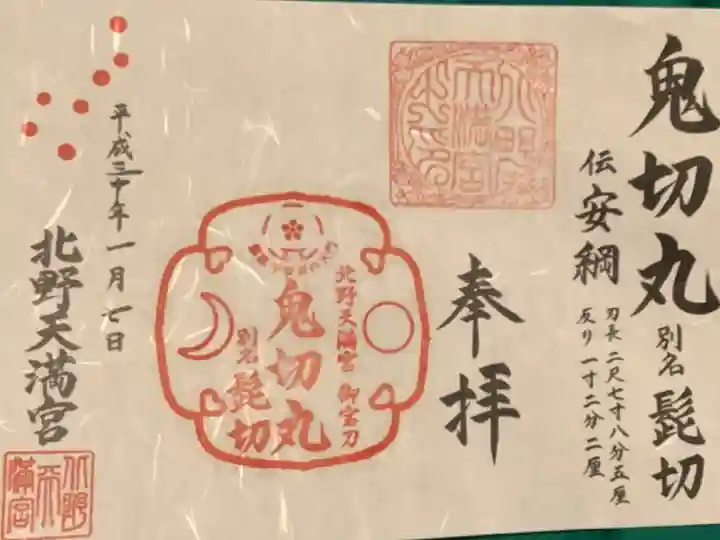 鬼切丸 別名 髭切
伝 安綱
刃長 二尺七寸八分五厘
反り 一寸二分二厘
奉拝
北野天満宮 御宝刀
鬼切丸
別名 髭切
平成三十年一月七日
北野天満宮
北野
天
満宮